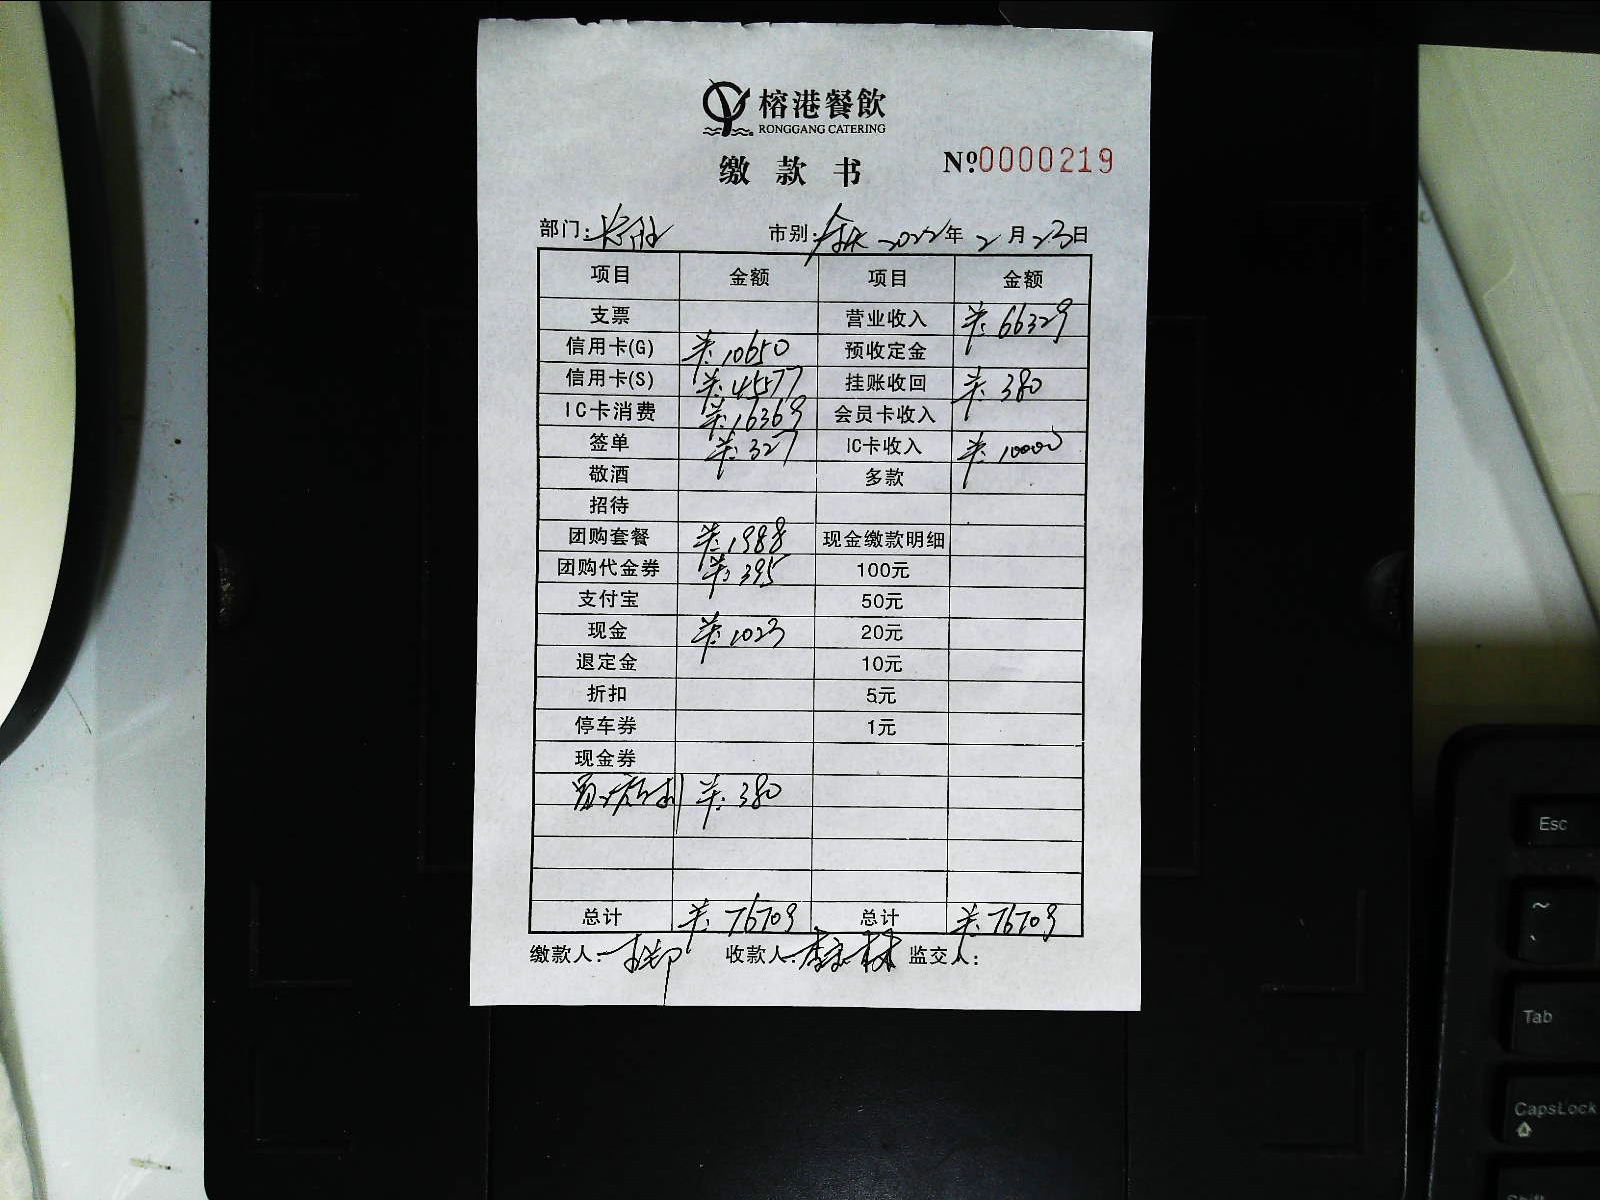 榕港餐飲
RONGGANG CATERING
缴款书 №0000219
部门: 市别: 全天 2022年2月23日
项目 金额 项目 金额
支票 营业收入 ¥:66329
信用卡(G) ¥:10650 预收定金
信用卡(S) ¥:45577 挂账收回 ¥:380
IC卡消费 ¥:16369 会员卡收入
签单 ¥:327 IC卡收入 ¥:10000
敬酒 多款
招待
团购套餐 ¥:1988 现金缴款明细
团购代金券 ¥:395 100元
支付宝 50元
现金 ¥:1023 20元
退定金 10元
折扣 5元
停车券 1元
现金券
¥:380
总计 ¥:76709 总计 ¥:76709
缴款人: 收款人: 监交人:
Esc
~
Tab
CapsLock